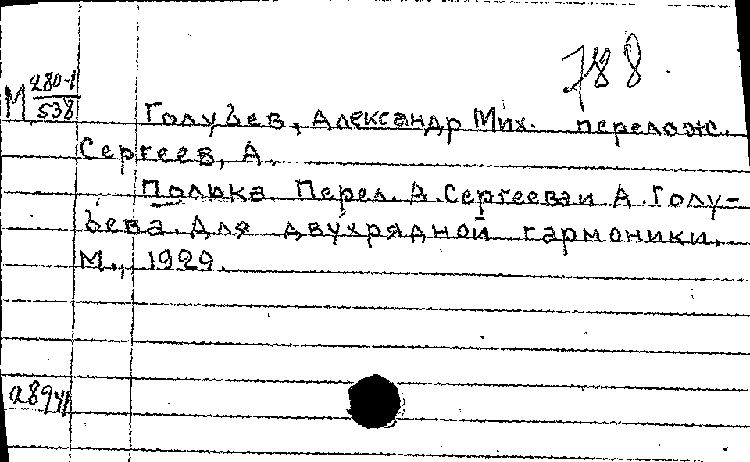 788
М 280-1
538
Голубев, Александр Мих. перелож.
Сергеев, А.
Полька. Перел. А. Сергеева и А. Голу-
бева. Для двухрядной гармоники.
М., 1929.